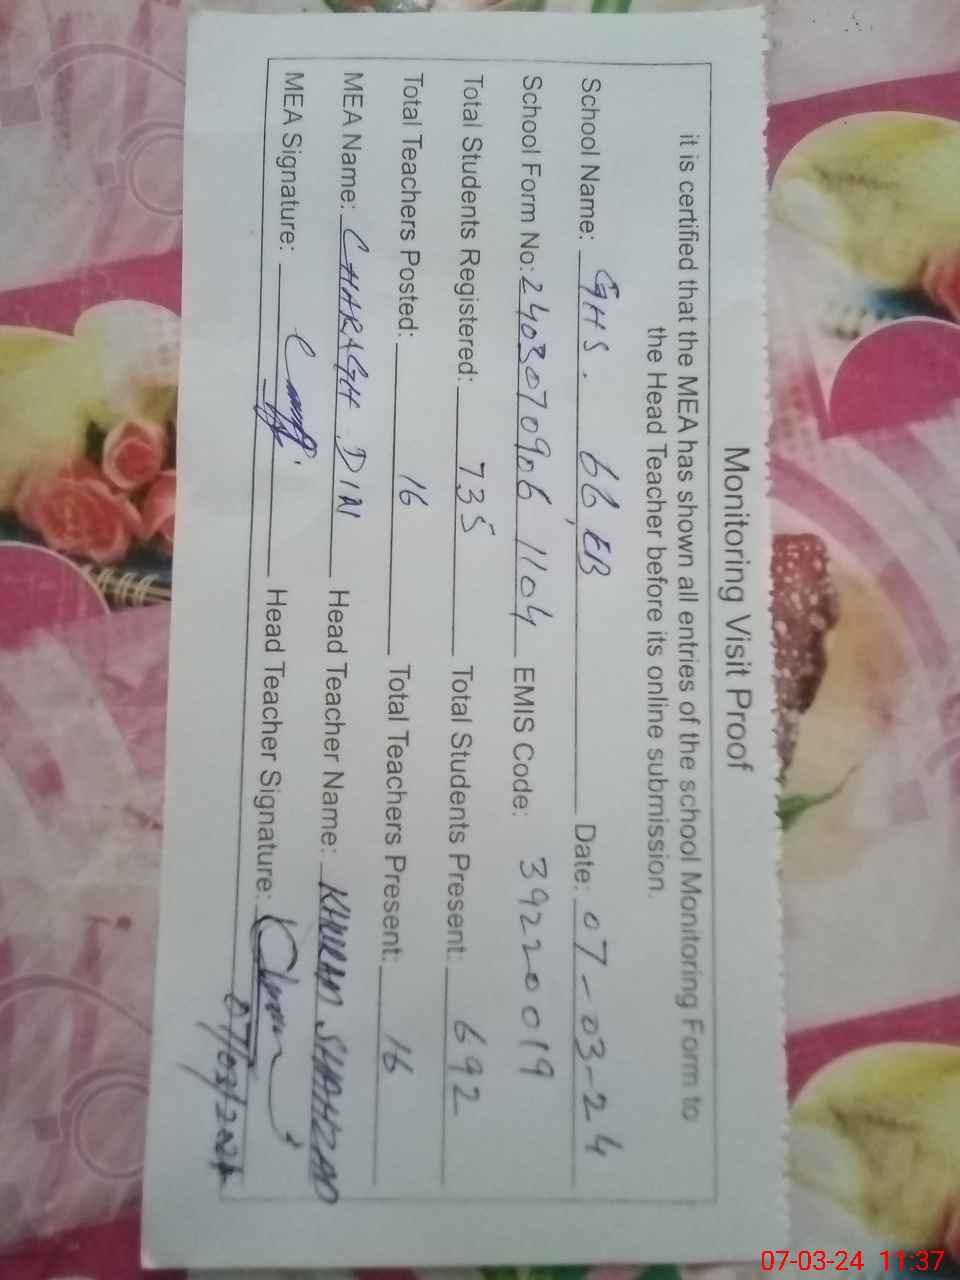 Monitoring Visit Proof
it is certified that the MEA has shown all entries of the school Monitoring Form to
the Head Teacher before its online submission.
School Name: GHS. 66, EB Date: 07-03-24
School Form No: 2403070906 1104 EMIS Code: 39220019
Total Students Registered: 735 Total Students Present: 692
Total Teachers Posted: 16 Total Teachers Present: 16
MEA Name: CHARAGH DIN Head Teacher Name: KHURAM SHAHZAD
MEA Signature: Head Teacher Signature:
07/03/2024
07-03-24 11:37